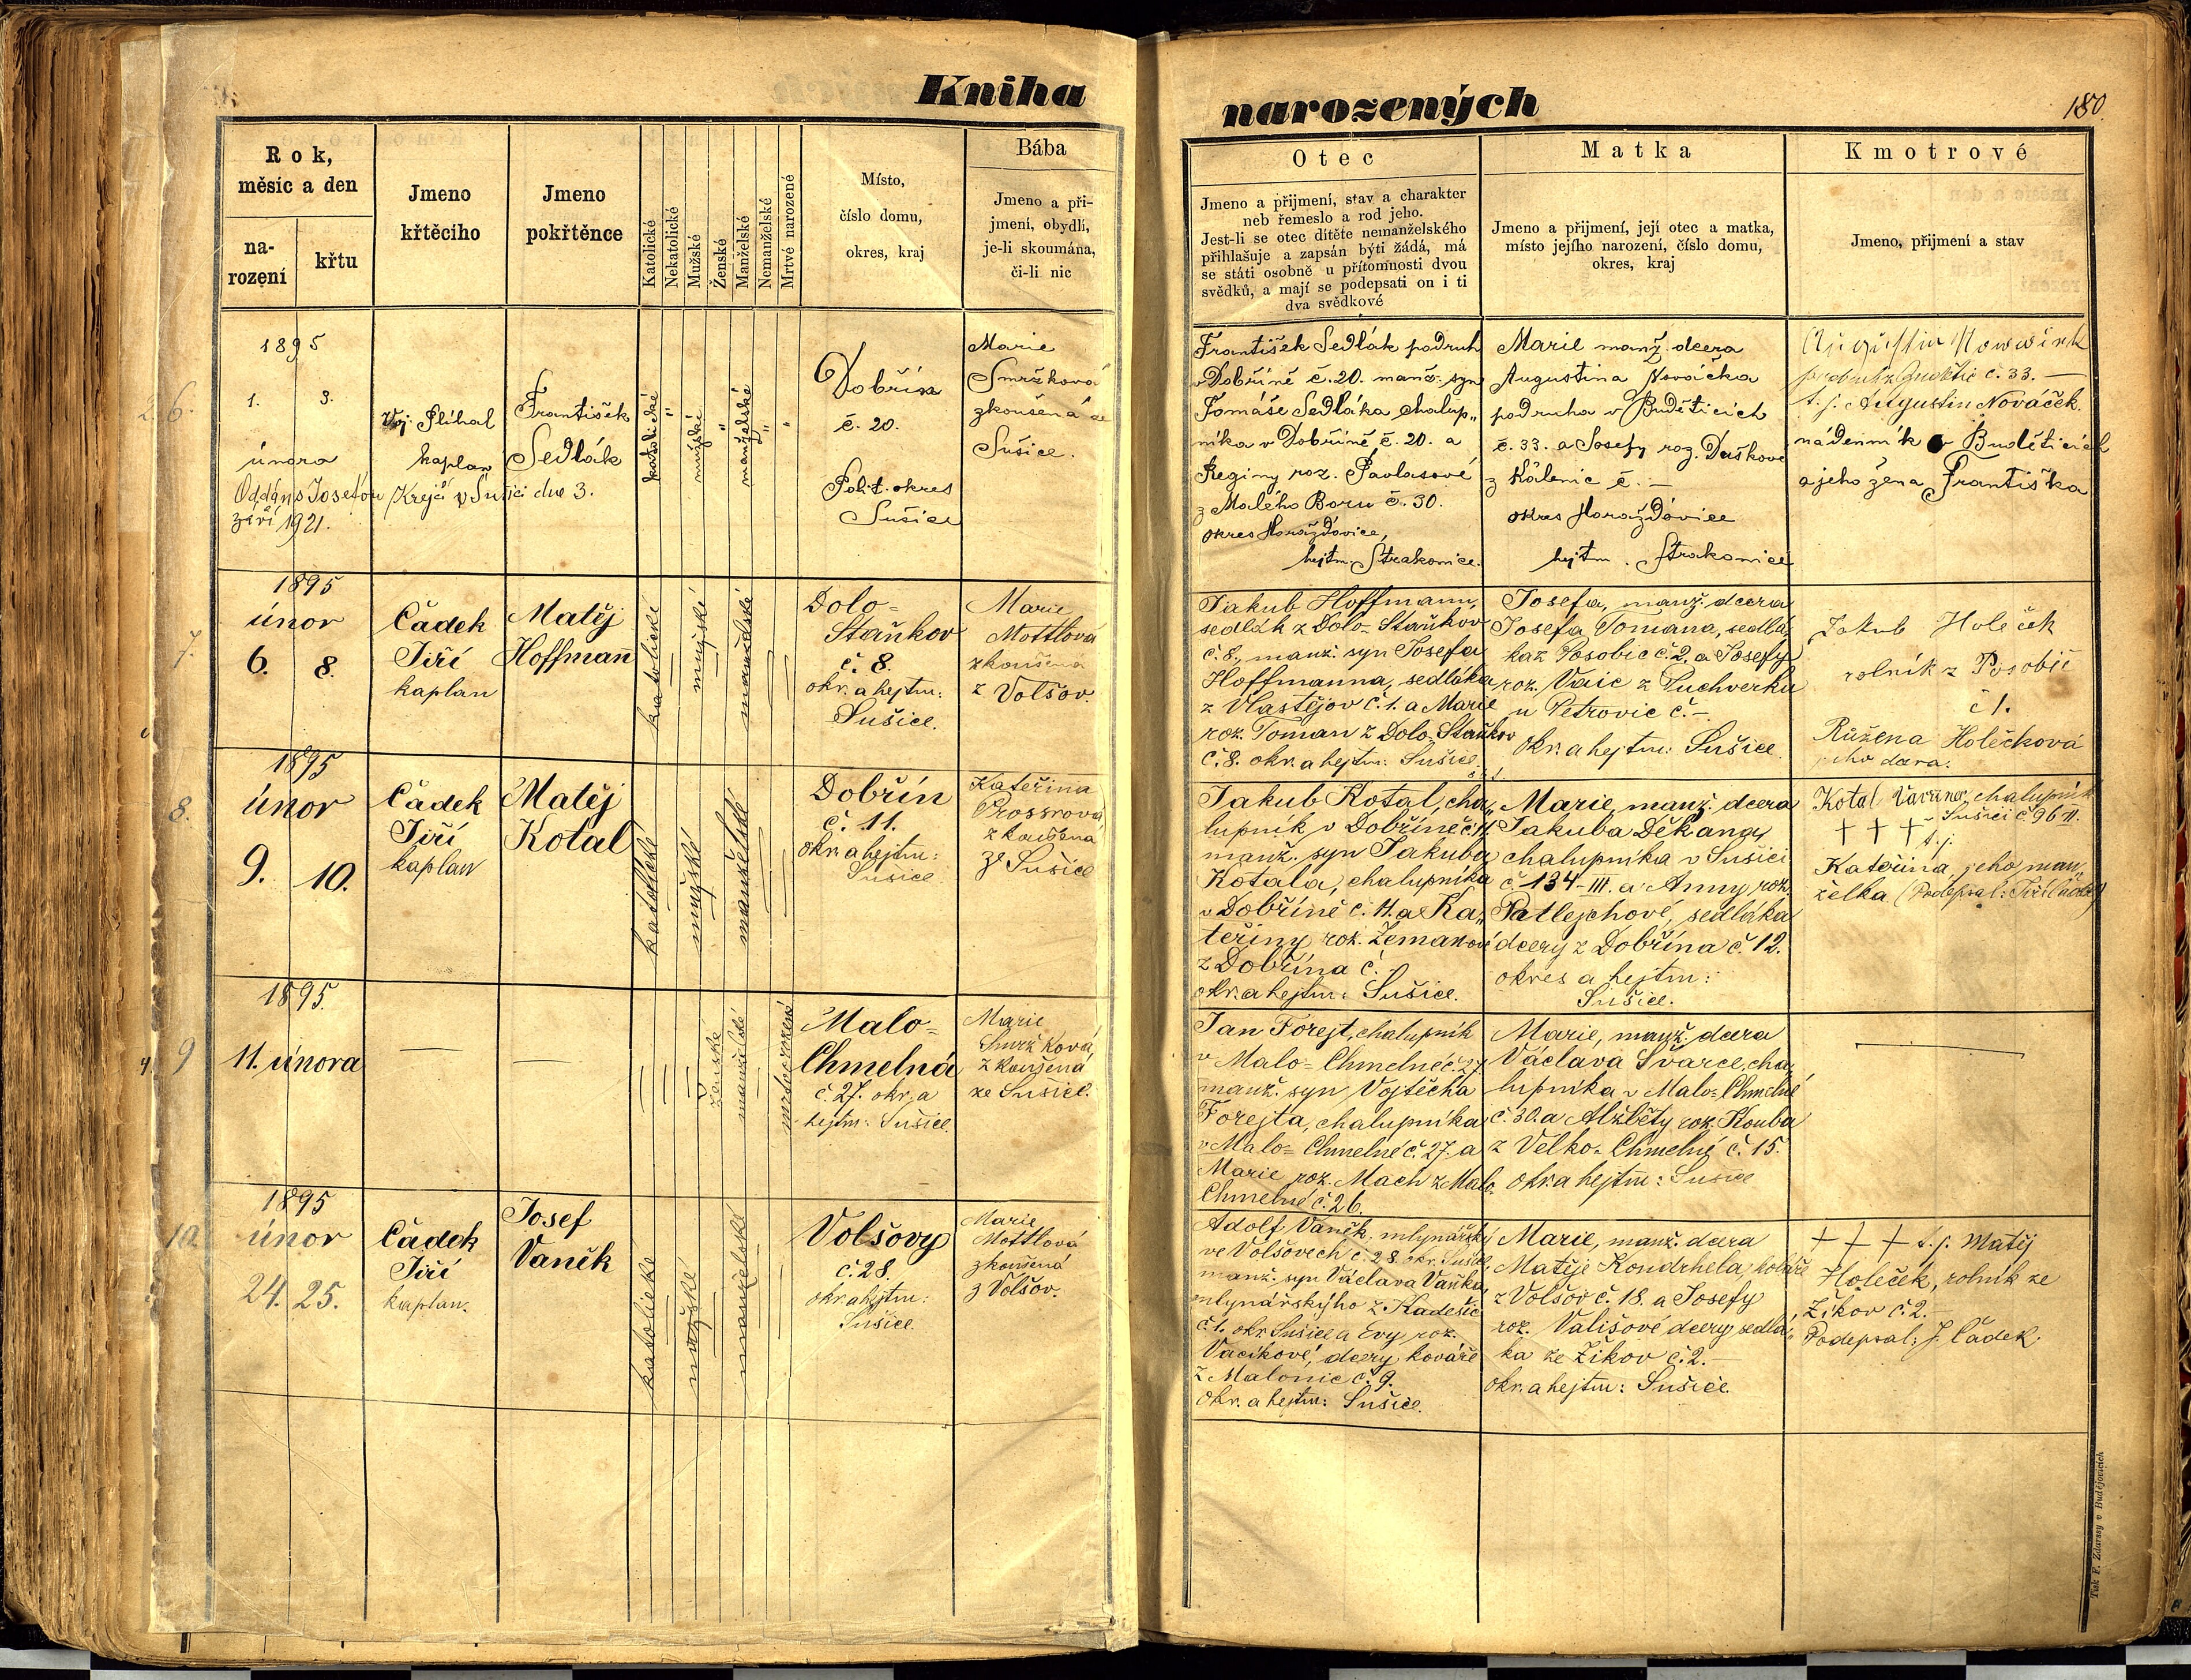 Kniha
narozených
180.
Rok,
měsíc a den
na-
rození
křtu
Jmeno
křtěcího
Jmeno
pokřtěnce
Katolické
Nekatolické
Mužské
Ženské
Manželské
Nemanželské
Mrtvé narozené
Místo,
číslo domu,
okres, kraj
Bába
Jmeno a pří-
jmení, obydlí,
je-li skoumána,
či-li nic
Otec
Jmeno a přijmení, stav a charakter
neb řemeslo a rod jeho.
Jest-li se otec dítěte nemanželského
přihlašuje a zapsán býti žádá, má
se státi osobně u přítomnosti dvou
svědků, a mají se podepsati on i ti
dva svědkové
Matka
Jmeno a přijmení, její otec a matka,
místo jejího narození, číslo domu,
okres, kraj
Kmotrové
Jmeno, přijmení a stav
6.
1895
1. 3.
února
Oddán s Josefou Krejčí v Sušici dne 3.
září 1921.
Voj. Slíhal
kaplan
František
Sedlák
katolické
mužské
manželské
Dobřín
č. 20.
Polit. okres
Sušice
Marie
Smržková
zkoušená ze
Sušice.
František Sedlák podruh
v Dobříně č. 20. manž. syn
Tomáše Sedláka chalup„
níka v Dobříně č. 20. a
Reginy roz. Pavlasové
z Malého Boru č. 30.
okres Horažďovice,
hejtm. Strakonice.
Marie manž. dcera
Augustina Nováčka
podruha v Budětících
č. 33. a Josefy roz. Duškove
z Kálenic č. —
okres Horažďovice
hejtm. Strakonice
č. 33. —
t. j. Augustin Nováček.
nádenník v Budětících
a jeho žena Františka
7.
1895
únor
6. 8.
Čádek
Jiří
kaplan
Matěj
Hoffmann
katolické
mužské
manželské
Dolo-
Staňkov
č. 8.
okr. a hejtm:
Sušice.
Marie
Mottlová
zkoušená
z Volšov.
Jakub Hoffmann,
sedlák z Dolo-Staňkov
č. 8., manž. syn Josefa
Hoffmanna, sedláka
z Vlastějov č. 1. a Marie
roz. Toman z Dolo-Staňkov
č. 8. okr. a hejtm: Sušice.
Josefa, manž. dcera
Josefa Tomana, sedlá„
ka z Posobic č. 2. a Josefy
roz. Vaic z Suchverku
u Petrovic č. –.
Okr. a hejtm: Sušice.
Jakub Holeček
rolník z Posobic
č 1.
Růžena Holečková
jeho dcera.
8.
1895
únor
9. 10.
Čádek
Jiří
kaplan
Matěj
Kotal
katolické
mužské
manželské
Dobřín
č. 11.
okr. a hejtm:
Sušice
Kateřina
zkoušená
ze Sušice
Jakub Kotal, cha„
lupník v Dobříně č. 11.
manž. syn Jakuba
Kotala, chalupníka
v Dobříně č. 11. a Ka„
teřiny roz. Zemanové
z Dobřína č. –
okr. a hejtm: Sušice.
Marie, manž. dcera
Jakuba Děkana,
chalupníka v Sušici
č. 134-III. a Anny roz.
Patlejchové, sedláka
dcery z Dobřína č. 12.
okres a hejtm:
Sušice.
Kotal Vavřinec, chalupník
v Sušici č 96 II.
+ + + t. j.
Kateřina, jeho man„
želka (Podepsal: Jiří Čádek)
9
1895.
11. února
—
—
ženské
manželské
mrtvorozené
Malo-
Chmelná
č. 27. okr. a
hejtm: Sušice.
Marie
Smržková
zkoušená
ze Sušice.
Jan Forejt, chalupník
v Malo-Chmelné č. 27
manž. syn Vojtěcha
Forejta, chalupníka
v Malo-Chmelné č. 27. a
Marie roz. Mach z Malo
Chmelné č. 26.
Marie, manž. dcera
Václava Švarce, cha„
lupníka v Malo-Chmelné
č. 30. a Alžběty roz. Kouba
z Velko-Chmelné č. 15.
okr. a hejtm: Sušice
—
10.
1895
únor
24. 25.
Čádek
Jiří
kaplan.
Josef
Vaněk
katolické
mužské
manželské
Volšovy
č. 28.
okr. a hejtm:
Sušice.
Marie
Mottlová
zkoušená
z Volšov.
Adolf Vaněk, mlynářský
ve Volšovech č. 28. okr. Sušice,
manž. syn Václava Vaňka,
mlynářskýho z Kadešic
č. 1. okr. Sušice a Evy roz.
Vacíkové, dcery kováře
z Malonic č. 9.
Okr. a hejtm: Sušice.
Marie, manž. dcera
Matěje Kondrhela, koláře
z Volšov č. 18. a Josefy
roz. Vališové dcery sedlá„
ka ze Žikov č. 2. –
okr. a hejtm: Sušice.
+ + + t. j. Matěj
Holeček, rolník ze
Žikov č. 2. –
Podepsal: J. Čádek.
Tisk F. Zdarssy v Budějovicích